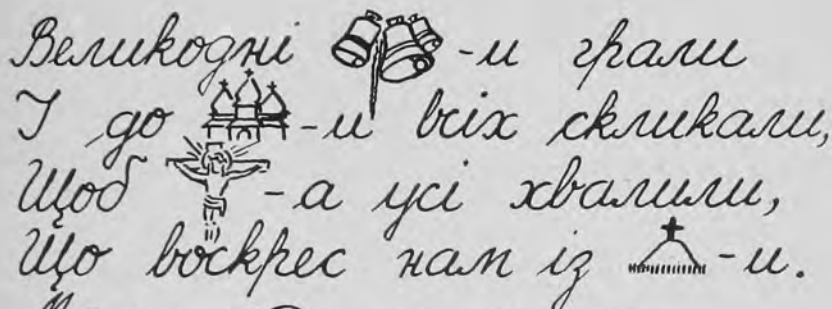 Великодні -и грали
І до -и всіх скликали,
Щоб -а усі хвалили,
Що воскрес нам із -и.